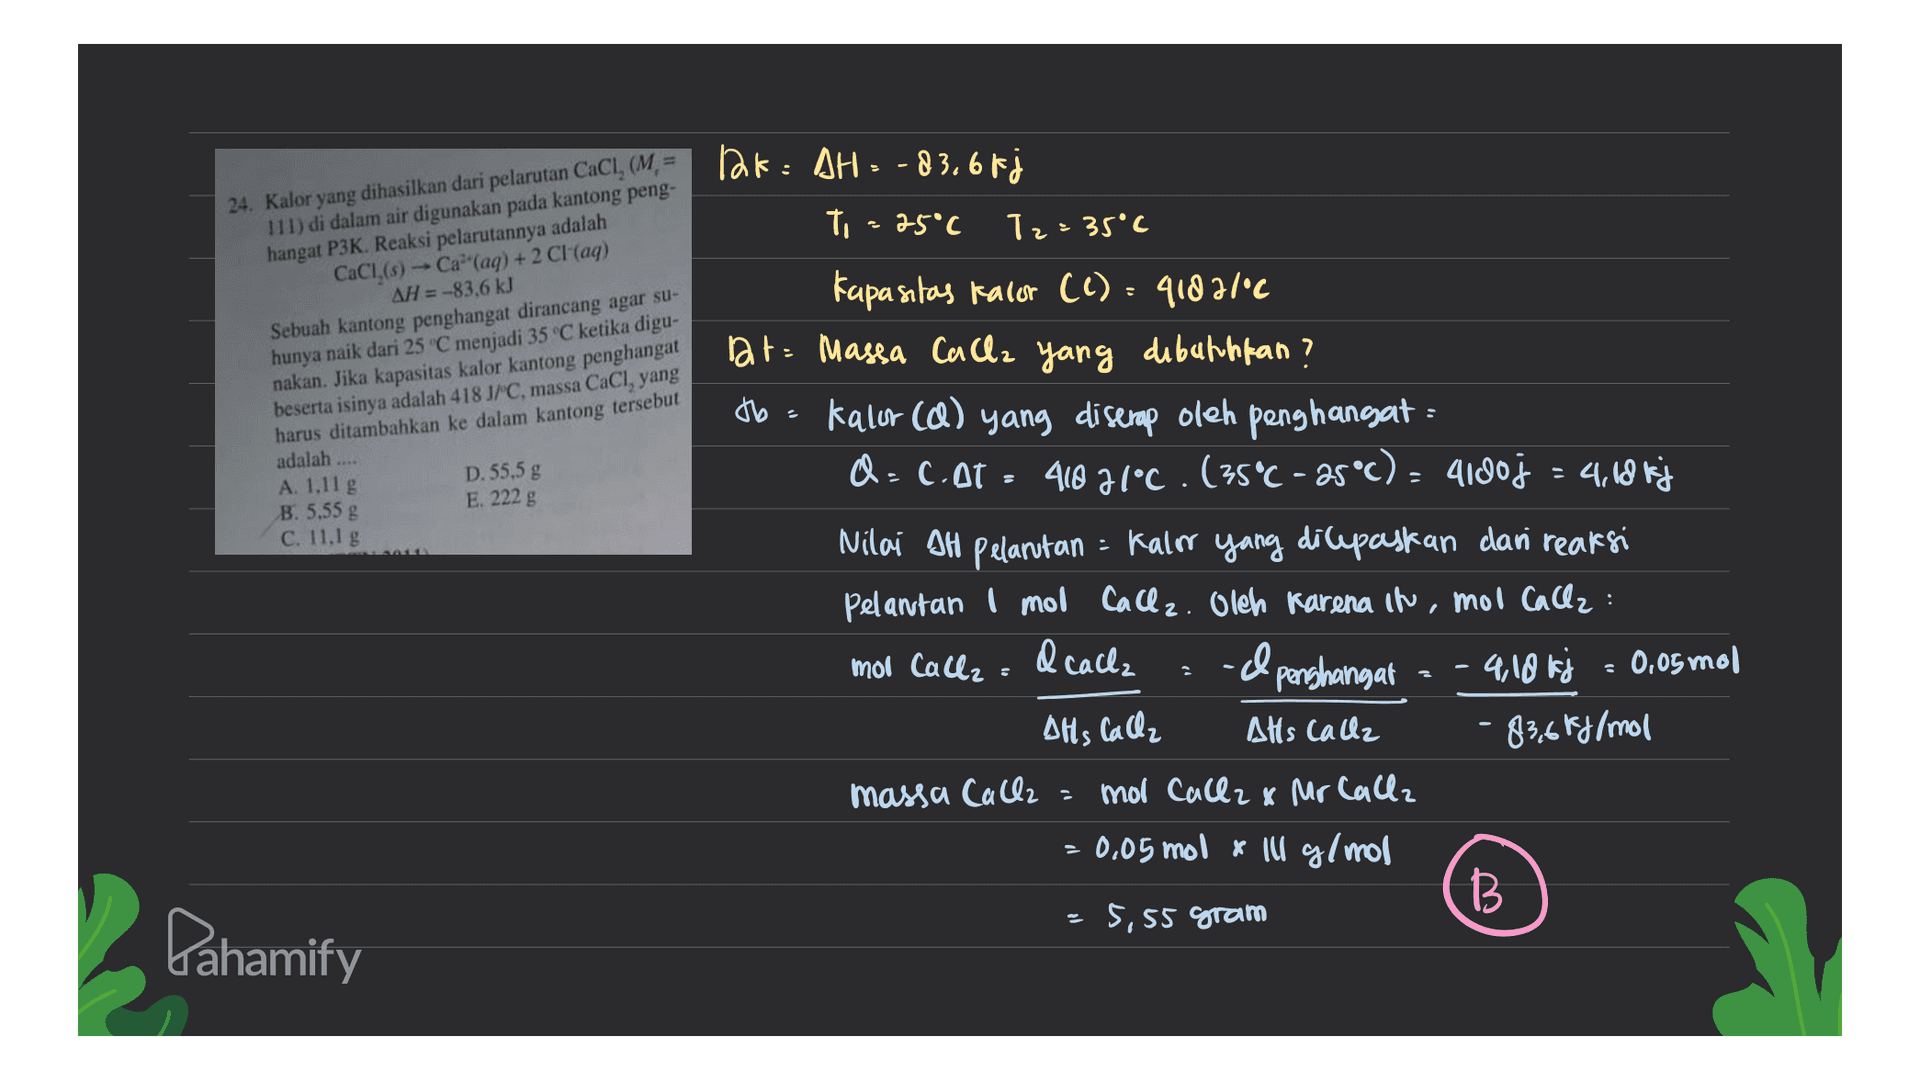 24. Kalor yang dihasilkan dari pelarutan CaCl₂ (Mᵣ =
111) di dalam air digunakan pada kantong peng-
hangat P3K. Reaksi pelarutannya adalah
CaCl₂(s) → Ca²⁺(aq) + 2 Cl⁻(aq)
ΔH = –83,6 kJ
Sebuah kantong penghangat dirancang agar su-
hunya naik dari 25 °C menjadi 35 °C ketika digu-
nakan. Jika kapasitas kalor kantong penghangat
beserta isinya adalah 418 J/°C, massa CaCl₂ yang
harus ditambahkan ke dalam kantong tersebut
adalah ....
A. 1,11 g
B. 5,55 g
C. 11,1 g
D. 55,5 g
E. 222 g
Dik = ΔH = -83,6 kj
T₁ = 25°C T₂ = 35°C
Kapasitas kalor (C) = 418 J/°C
Dit = Massa CaCl₂ yang dibutuhkan ?
Jb = Kalor (Q) yang diserap oleh penghangat =
Q = C.ΔT = 418 J/°C . (35°C - 25°C) = 4180j = 4,18 kj
Nilai ΔH pelarutan = Kalor yang dilepaskan dari reaksi
Pelarutan 1 mol CaCl₂. Oleh karena itu, mol CaCl₂ :
mol CaCl₂ = Q CaCl₂ = -Q penghangat = - 4,18 kj = 0,05 mol
ΔHs CaCl₂ ΔHs CaCl₂ - 83,6 kJ/mol
massa CaCl₂ = mol CaCl₂ x Mr CaCl₂
= 0,05 mol x 111 g/mol
= 5,55 gram
B
Pahamify